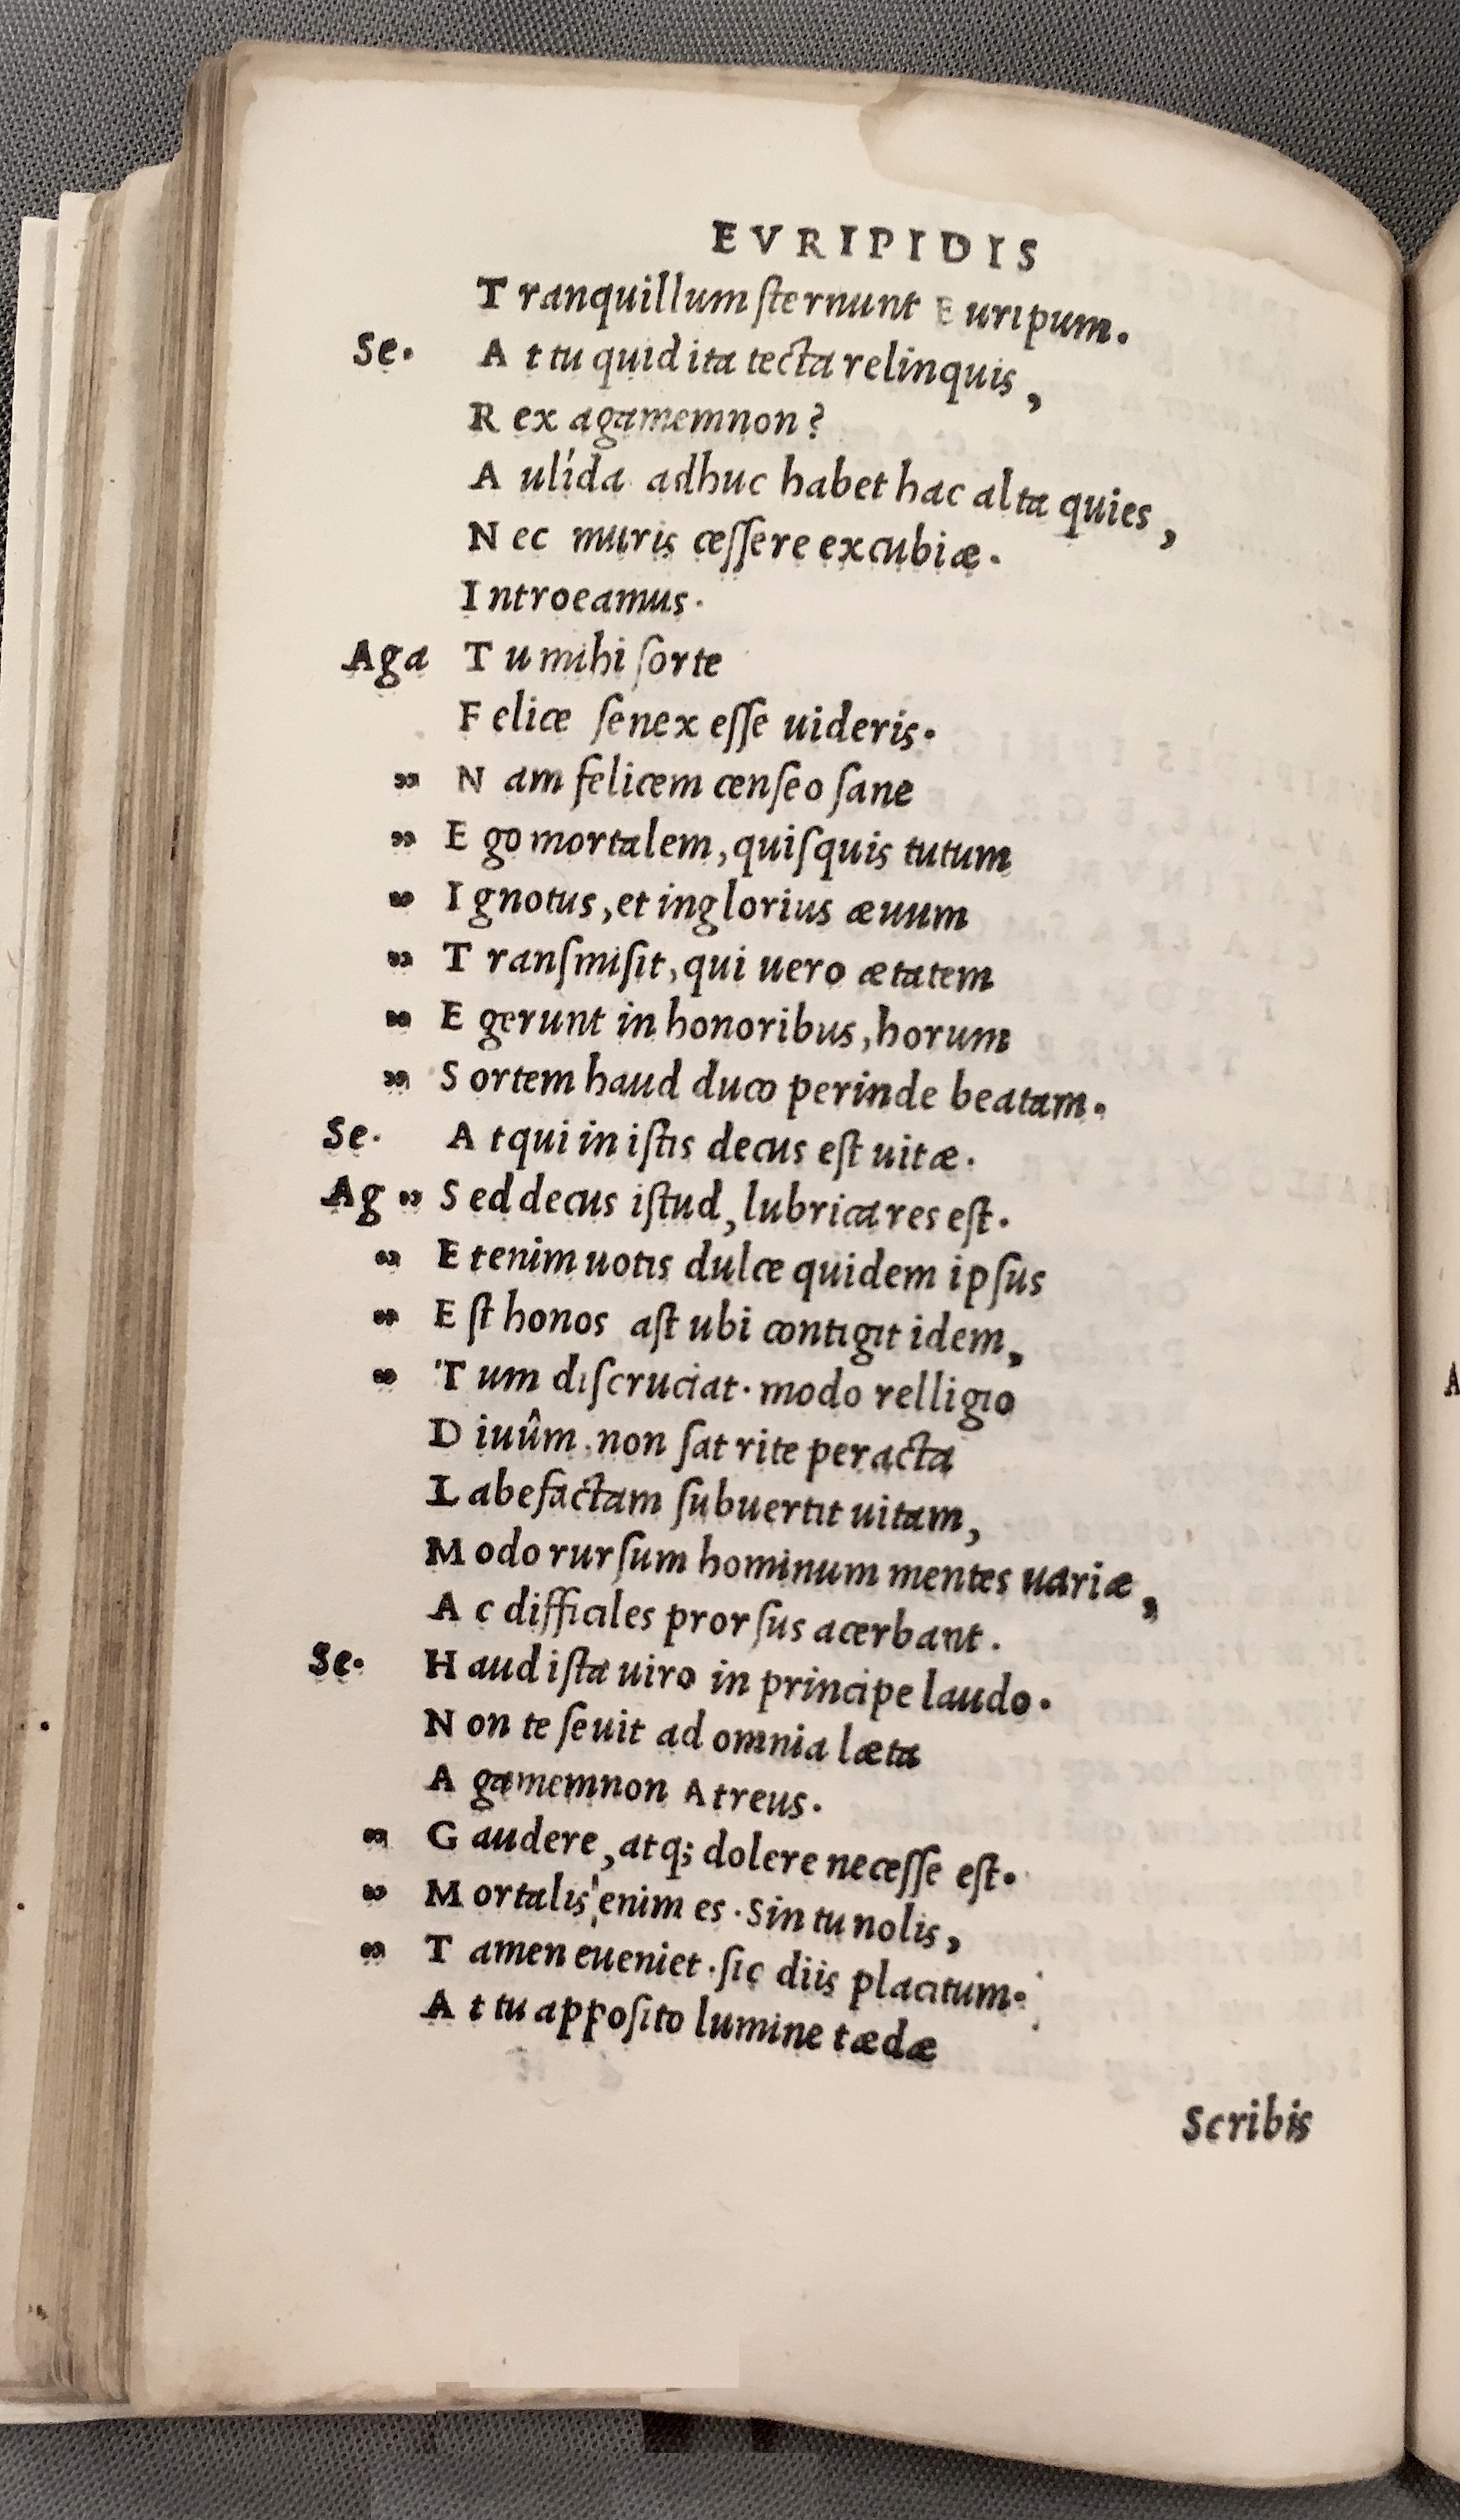 EVRIPIDIS
Tranquillum sternunt Euripum.
Se. At tu quid ita tecta relinquis,
Rex agamemnon?
Aulída adhuc habet hac alta quies,
Nec muris cessere excubiæ.
Introeamus.
Aga Tu mihi sorte
Felice senex esse uideris.
" Nam felicem censeo sane
" Ego mortalem, quisquis tutum
" Ignotus, et inglorius æuum
" Transmisit, qui uero ætatem
" Egerunt in honoribus, horum
" Sortem haud duco perinde beatam.
Se. Atqui in istis decus est uitæ.
Ag " Sed decus istud, lubrica res est.
" Etenim uotis dulce quidem ipsus
" Est honos ast ubi contigit idem,
" Tum discruciat. modo relligio
Diuûm. non sat rite peracta
Labefactam subuertit uitam,
Modo rursum hominum mentes uariæ,
Ac difficiles prorsus acerbant.
Se. Haud ista uiro in principe laudo.
Non te seuit ad omnia læta
Agamemnon Atreus.
" Gaudere, atq; dolere necesse est.
" Mortalis enim es. Sin tu nolis,
" Tamen eueniet. sic diis placitum.
At tu apposito lumine tædæ
Scribis